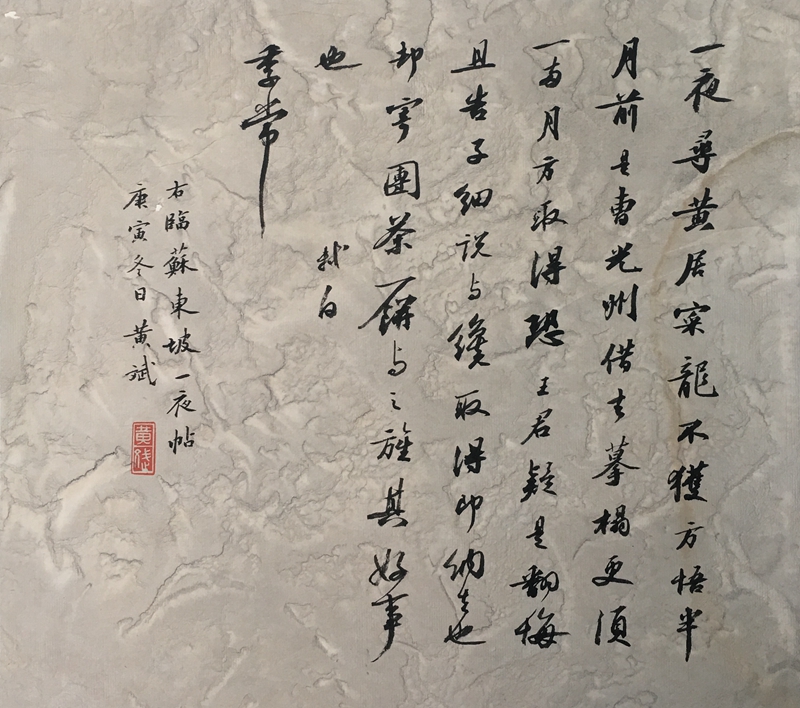 一夜尋黄居寀龍不獲方悟半
月前是曹光州借去摹榻更須
一両月方取得恐王君疑是翻悔
且告子細説与纔取得即納去也
却寄團茶一餅与之旌其好事
也
軾白
季常
右臨蘇東坡一夜帖
庚寅冬日黄斌